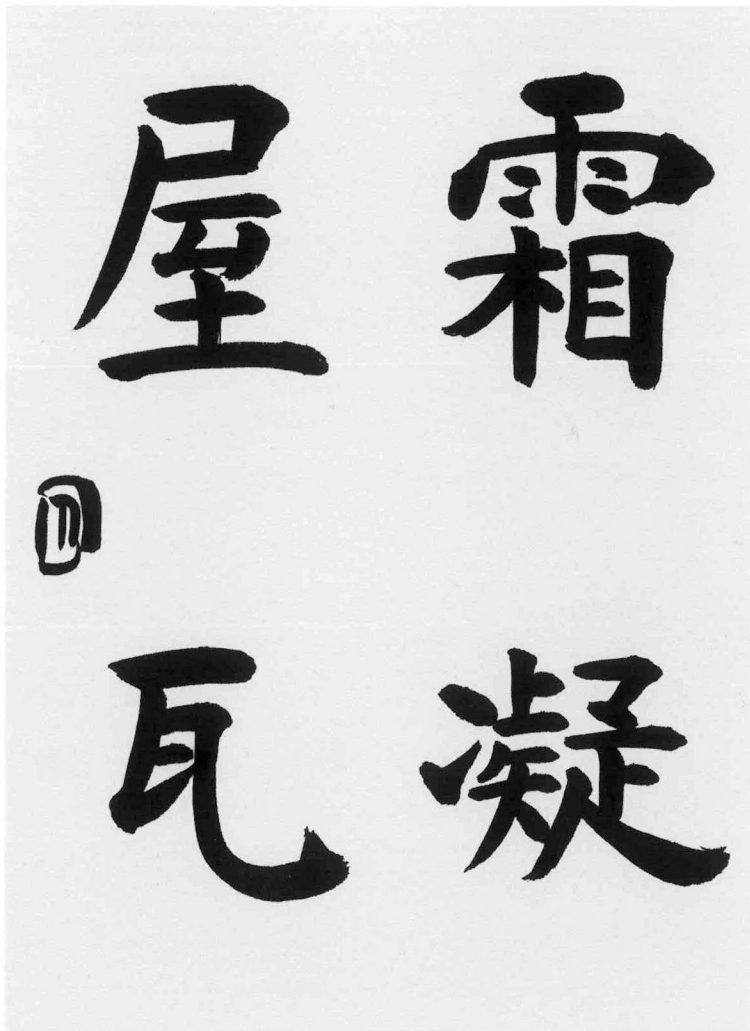 霜凝
屋瓦